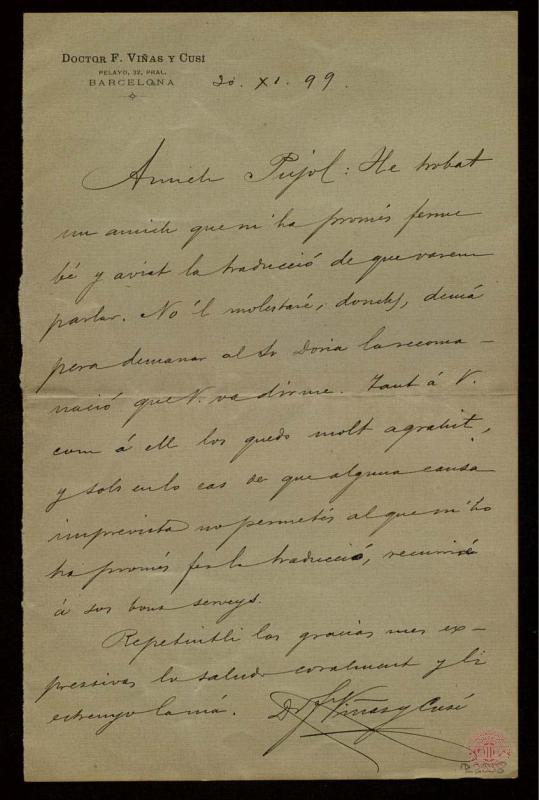 DOCTOR F. VIÑAS Y CUSÍ
PELAYO, 32, PRAL.
BARCELONA
20. XI. 99.
Amich Pujol: He trobat
un amich que m'ha promés ferme
bé y aviat la traducció de que varem
parlar. No 'l molestaré, donchs, demá
pera demanar al Sr Doria la recoma-
nació que V. va dirme. Tant á V.
com á ell los quedo molt agrahit,
y sols en lo cas de que alguna causa
imprevista no permetés al que m'ho
ha promés fer la traducció, recorreré
á sos bons serveys.
Repetintli las gracias mes ex-
pressivas lo saluda coralment y li
estreny la má. Dr F. Viñas y Cusí